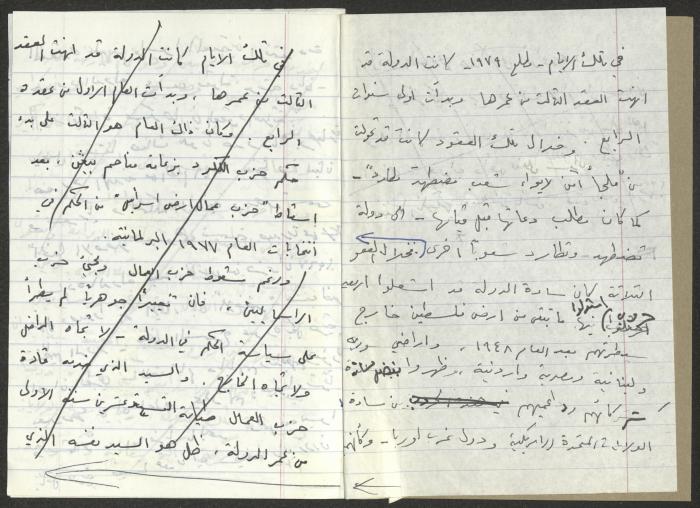 في تلك الايام - مطلع ١٩٧٩ - كانت الدولة قد
انهت العقد الثالث من عمرها وبدأت اولى سنوات
الرابع. وخلال تلك العقود كانت قد تحولت
من "ملجأ آمن لايواء شعب مضطهد مطارد" -
كما كان يطلب دعاتها قبل قيامها - الى دولة
تضطهد وتطارد شعوبا اخرى. (فخلال العقود
الثلاثة كان سادة الدولة قد اشعلوا اربعة
حروب، احتلوا فيها ما تبقى من ارض فلسطين خارج
سيطرتهم بعد العام ١٩٤٨، واراضي
ولبنانية ومصرية واردنية، وظهروا بفضل مساندة
شركائهم وداعميهم من سادة
الولايات المتحدة الامريكية ودول غرب اوربا - وكأنهم
في تلك الايام كانت الدولة قد انهت العقد
الثالث من عمرها، وبدأت العام الاول من عقده
الرابع. وكان ذلك العام هو الثالث على بدء
حكم حزب بزعامة مناحم بيغن، بعد
اسقاط "حزب عمال ارض اسرائيل" من الحكم في
انتخابات العام ١٩٧٧ البرلمانية.
ورغم سقوط حزب العمال ومجيئ حزب
بيغن، فان تغييرا جوهريا لم يطرأ
على سياسة الحكم في الدولة - لا تجاه الداخل
ولا تجاه الخارج. والسيد الذي خدمه قادة
حزب العمال طيلة التسع وعشرين سنة الاولى
من عمر الدولة، ظل هو السيد نفسه الذي